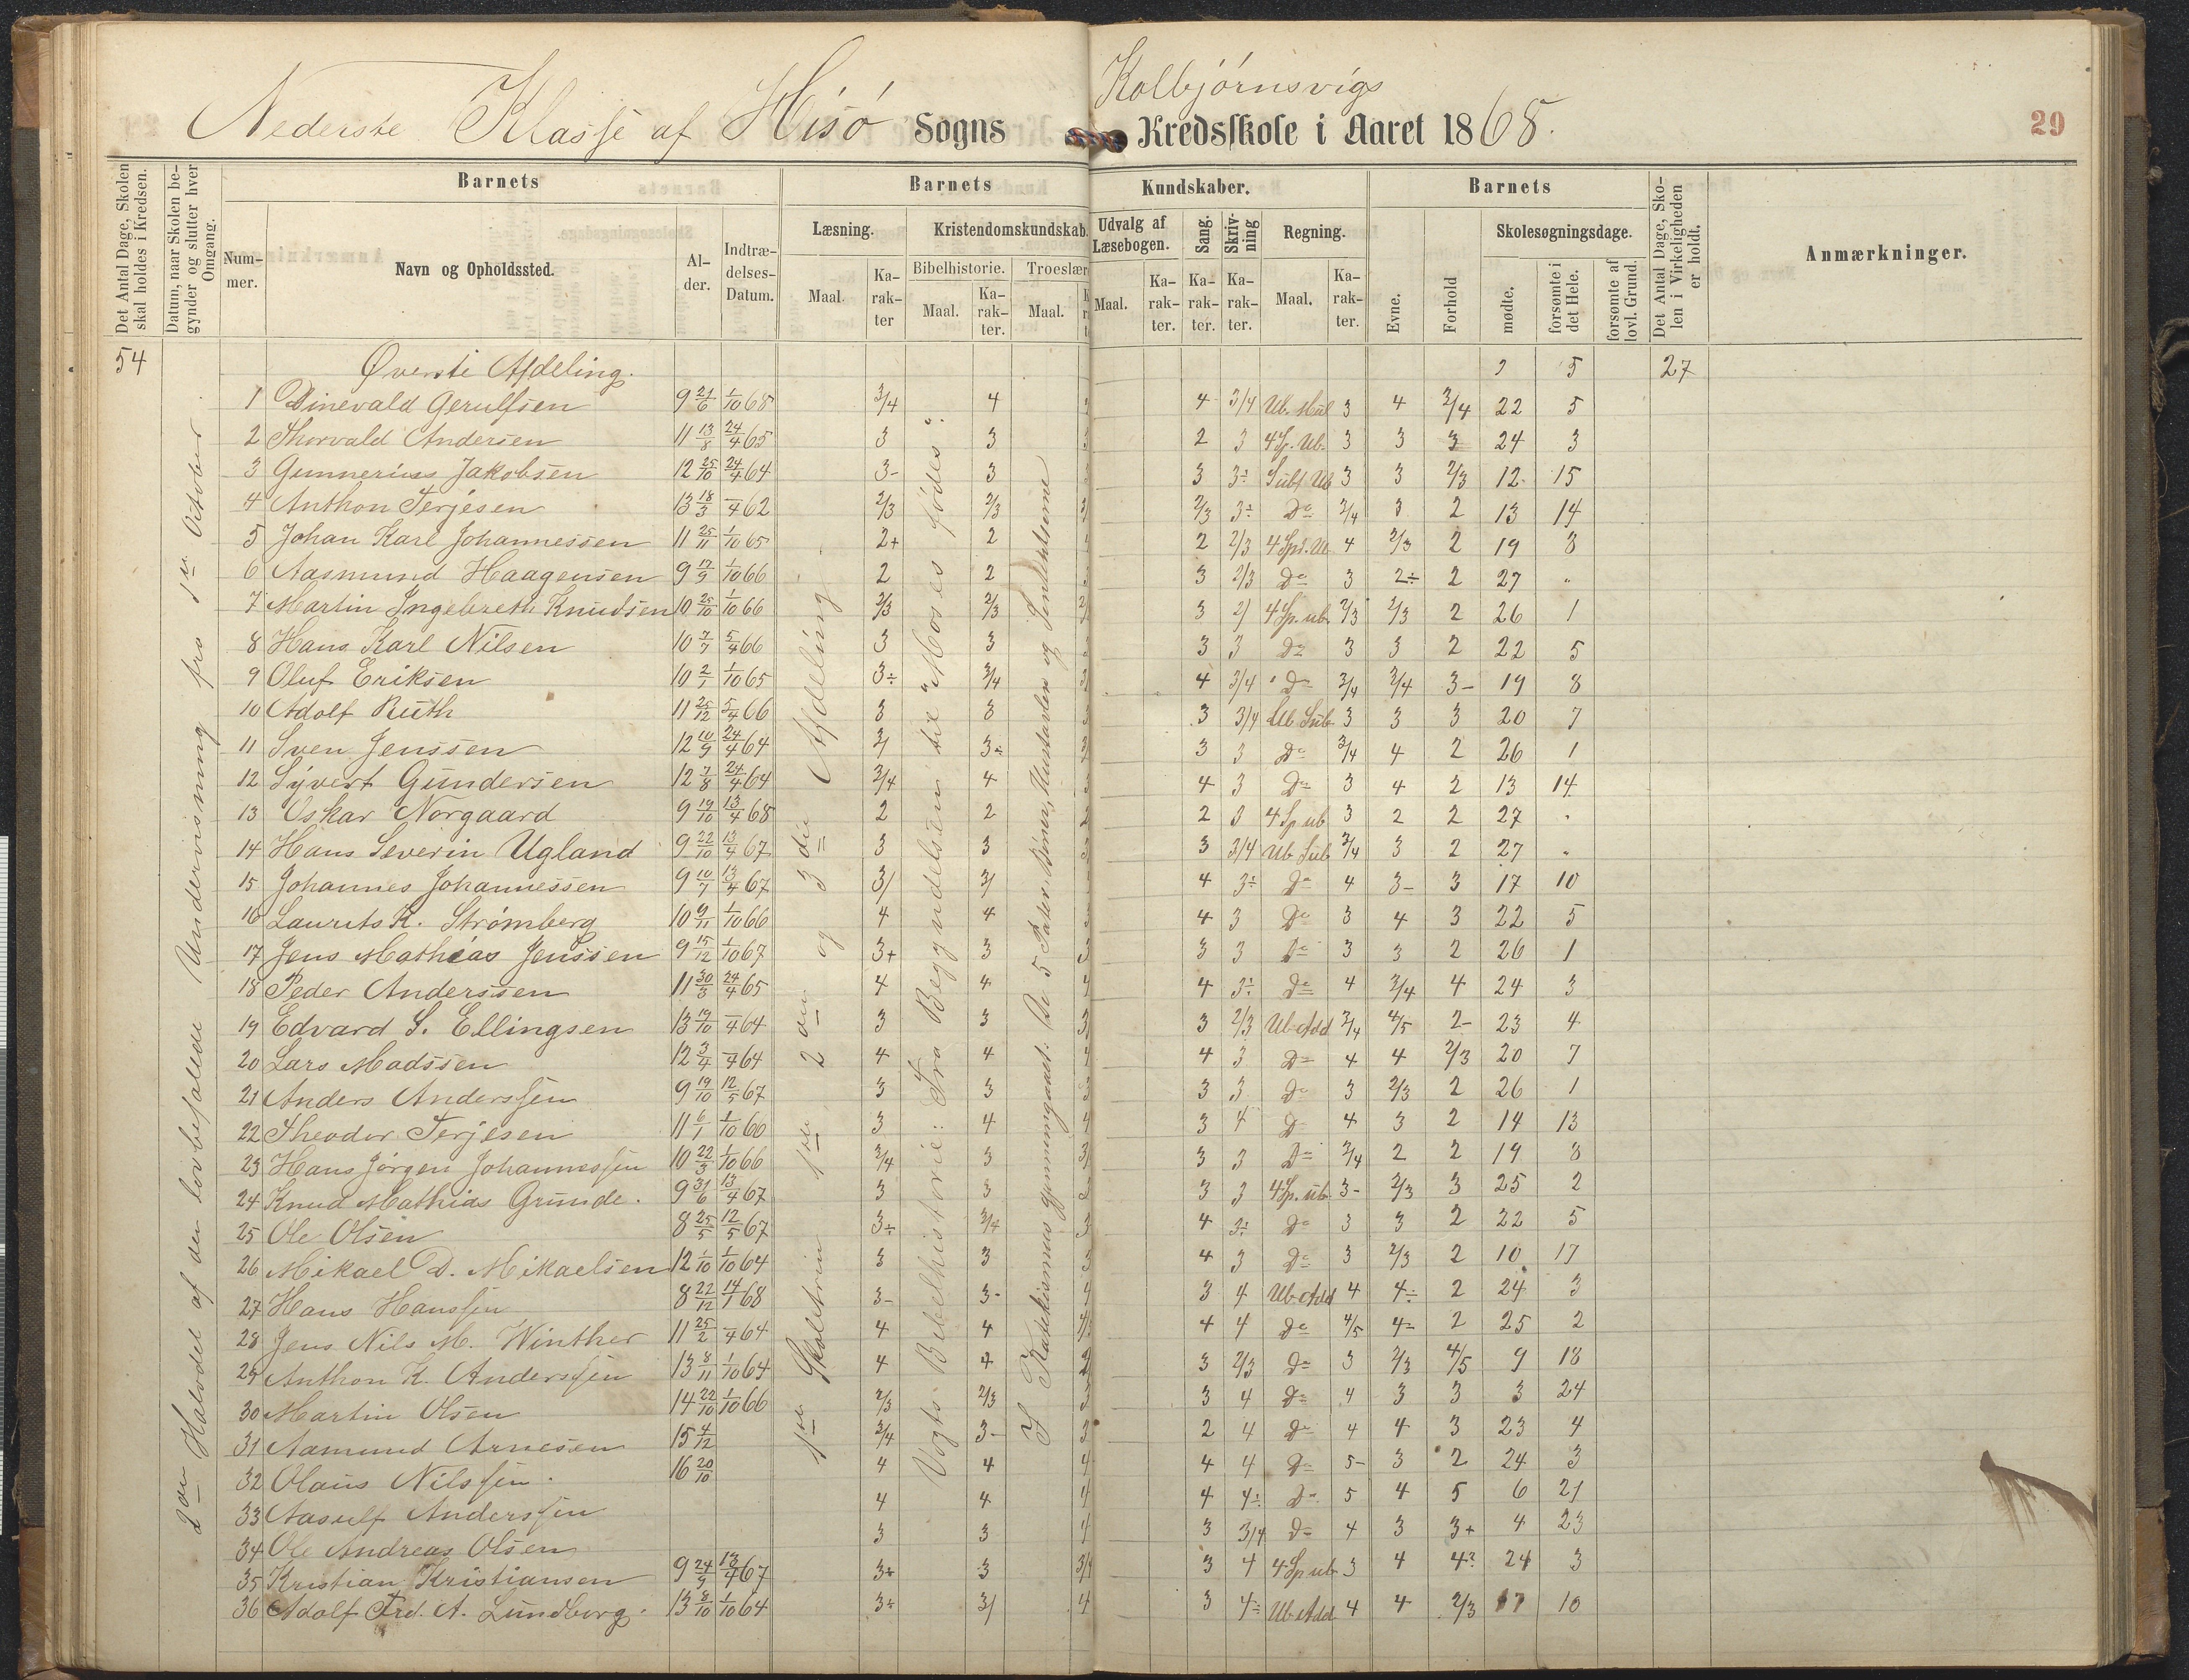 Nederste Klasse af Hisø Sogns
Kolbjørnsvigs
Kredsskole i Aaret 1868.
29
Det Antal Dage, Skolen skal holdes i Kredsen.
Datum, naar Skolen begynder og slutter hver Omgang.
Barnets
Nummer.
Navn og Opholdssted.
Alder.
Indtrædelses-Datum.
Barnets
Læsning.
Maal.
Karakter
Kristendomskundskab.
Bibelhistorie.
Maal.
Karakter.
Troeslær
Maal.
Kundskaber.
Udvalg af Læsebogen.
Maal.
Karakter.
Sang.
Karakter.
Skrivning
Karakter.
Regning.
Maal.
Karakter.
Barnets
Evne.
Forhold
Skolesøgningsdage.
mødte.
forsømte i det Hele.
forsømte af lovl. Grund.
Det Antal Dage, Skolen i Virkeligheden er holdt.
Anmærkninger.
54
2den Halvdel af den lovbefalede Undervisning fra 1ste October
1ste Skoletrin 1ste 2den og 3die Afdeling
Vogts Bibelhistorie: Fra Begyndelsen til "Moses fødes".
I Katekismus gjennemgaaet: De 5 Parter, Bønner, Hustavlen og
Øverste Afdeling. 5 27
1 Dinevald Gerulfsen 9 21/6 1/10 68 3/4 4 4 3/4 Ub. Mul 3 4 3/4 22 5
2 Thorvald Andersen 11 13/8 24/4 65 3 3 2 3 4 Sp. Ub. 3 3 3 24 3
3 Gunnerius Jakobsen 12 25/10 24/4 64 3- 3 3 3÷ Subt. Ub 3 3 2/3 12 15
4 Anthon Terjesen 13 18/3 –/4 62 2/3 2/3 2/3 3÷ Do 3/4 3 2 13 14
5 Johan Karl Johannessen 11 25/11 1/10 65 2+ 2 2 2/3 4 Spd. Ub 4 2/3 2 19 8
6 Aasmund Haagensen 9 17/9 1/10 66 2 2 3 2/3 Do 3 2÷ 2 27 "
7 Martin Ingebreth Knudsen 10 25/10 1/10 66 2/3 2/3 3 2/ 4 Sp. ub. 2/3 2/3 2 26 1
8 Hans Karl Nilsen 10 7/7 5/4 66 3 3 3 3 Do 3 3 2 22 5
9 Oluf Eriksen 10 2/1 1/10 65 3÷ 3/4 4 3/4 Do 3/4 3/4 3- 19 8
10 Adolf Ruth 11 25/12 5/4 66 3 3 3 3/4 Ub Sub 3 3 3 20 7
11 Sven Jenssen 12 10/9 24/4 64 3/ 3÷ 3 3 Do 3/4 4 2 26 1
12 Syvert Gundersen 12 7/8 24/4 64 3/4 4 4 3 Do 3 4 2 13 14
13 Oskar Norgaard 9 19/10 13/4 68 2 2 2 3 4 Sp ub 3 2 2 27 "
14 Hans Severin Ugland 9 22/10 13/4 67 3 3 3 3/4 Ub Sub 3/4 3 2 27 "
15 Johannes Johannessen 9 10/7 13/4 67 3/ 3/ 4 3÷ Do 4 3- 3 17 10
16 Laurits K. Strømberg 10 9/11 1/10 66 4 4 4 3 Do 3 4 3 22 5
17 Jens Mathias Jenssen 9 15/12 1/10 67 3+ 3 3 3 Do 3 3 2 26 1
18 Peder Anderssen 11 30/3 24/4 65 4 4 4 3÷ Do 4 3/4 4 24 3
19 Edvard S. Ellingsen 13 19/10 –/4 64 3 3 3 2/3 Ub Add 3/4 4/5 2- 23 4
20 Lars Madssen 12 3/4 –/4 64 4 4 4 3 Do 4 4 2/3 20 7
21 Anders Anderssen 9 19/10 12/5 67 3 3 3 3 Do 3 2/3 2 26 1
22 Theodor Terjesen 11 6/1 1/10 66 3 4 3 4 Do 4 3 2 14 13
23 Hans Jørgen Johannessen 10 22/3 1/10 66 3/4 3 3 3 Do 3/4 2 2 19 8
24 Knud Mathias Grunde. 9 31/6 13/4 67 3 3 3 3 4 Sp. ub 3- 2/3 3 25 2
25 Ole Olsen 8 25/5 12/5 67 3÷ 3/4 4 3÷ Do 3 3 2 22 5
26 Mikael D. Mikaelsen 12 1/10 1/10 64 3 3 4 3 Do 3 2/3 2 10 17
27 Hans Hanssen 8 22/12 14/1 68 3- 3- 3 4 Ub Add 4 4÷ 2 24 3
28 Jens Nils M. Winther 11 25/2 –/4 64 4 4 4 4 Do 4/5 4- 2 25 2
29 Anthon K. Anderssen 13 8/11 1/10 64 4 4 3 2/3 Do 3 2/3 4/5 9 18
30 Martin Olsen 14 22/10 1/10 66 2/3 2/3 3 4 Do 4 3 3 3 24
31 Aamund Arnesen 15 4/12 3/4 3- 2 4 Do 4 4 3 23 4
32 Olaus Nilssen. 16 20/10 4 4 4 4 Do 5- 3 2 24 3
33 Aasulf Anderssen 4 4 4 4÷ Do 5 4 5 6 21
34 Ole Andreas Olsen 3 3 3 3/4 Do 4 3 3+ 4 23
35 Kristian Kristiansen 9 24/9 13/4 67 3+ 3 3 4 4 Sp ub 3 4 4? 24 3
36 Adolf Fred. A. Lundborg. 13 8/10 1/10 64 3÷ 3/ 3 4÷ Ub Add 4 4 2/3 17 10